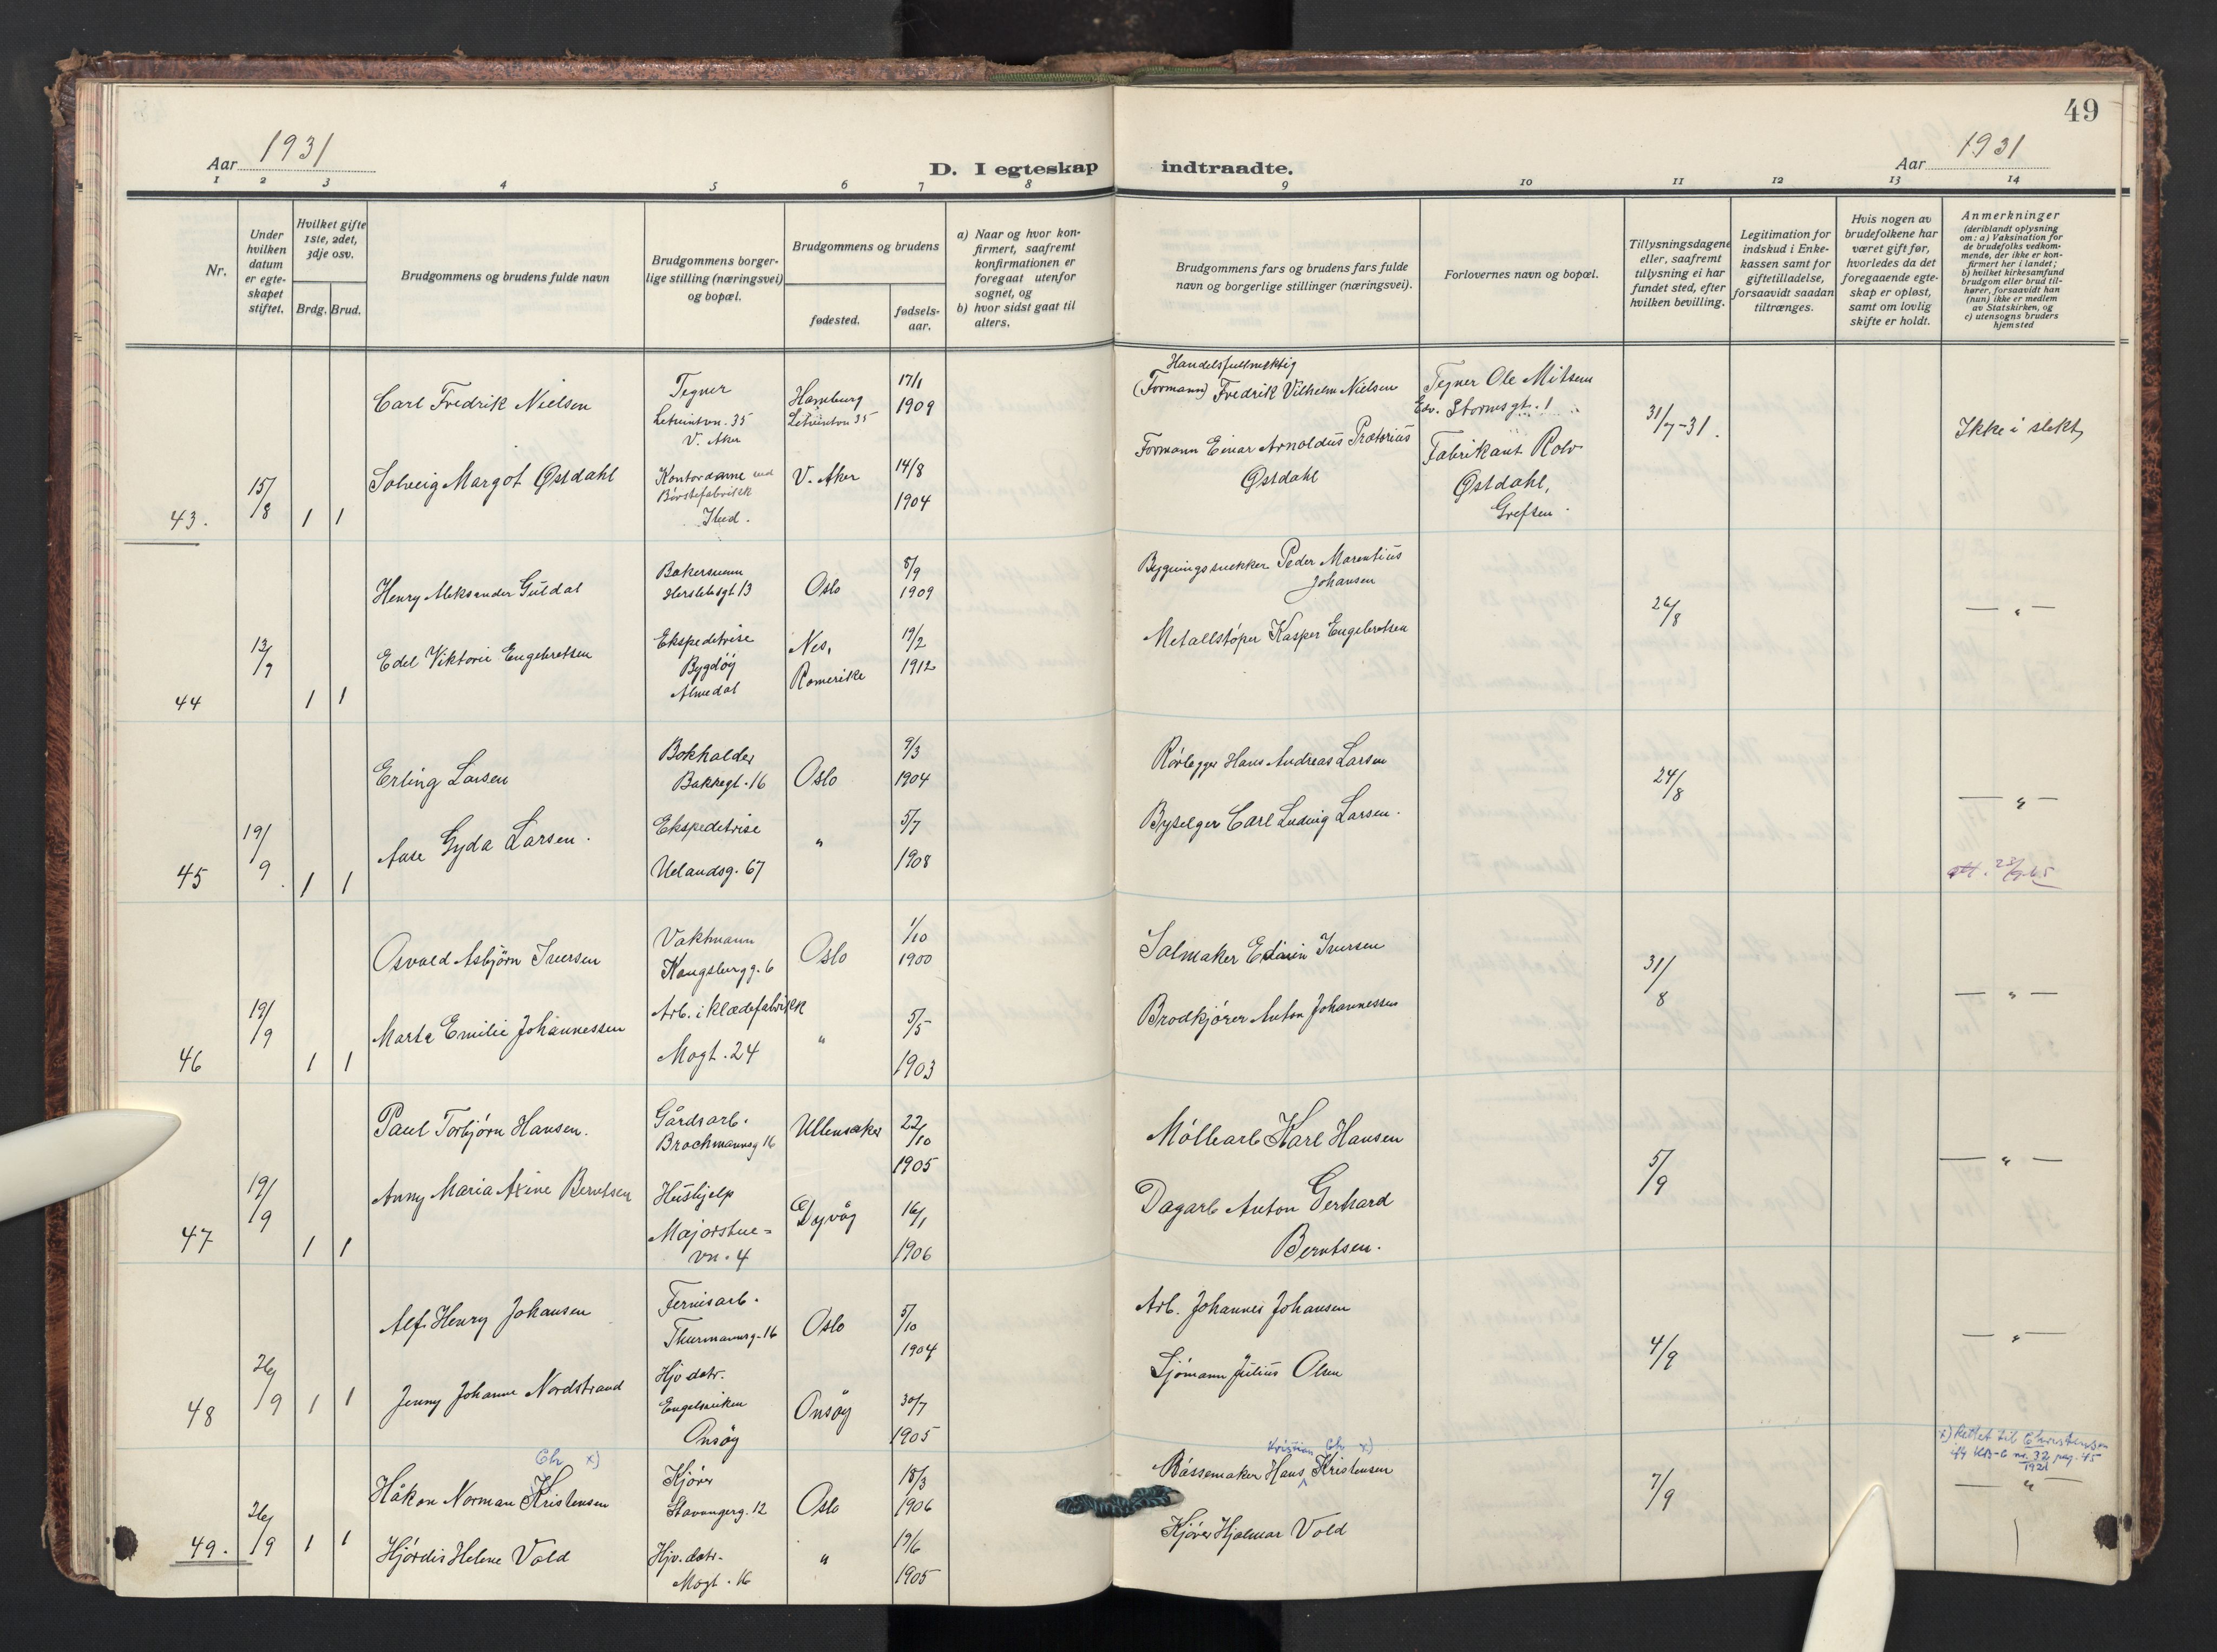 49
Aar 1931
D. I egteskap indtraadte.
Aar 1931
1 2 3 4 5 6 7 8 9 10 11 12 13 14
Nr.
Under hvilken datum er egte-skapet stiftet.
Hvilket gifte 1ste, 2det, 3dje osv.
Brdg. Brud.
Brudgommens og brudens fulde navn
Brudgommens borger-lige stilling (næringsvei) og bopæl.
Brudgommens og brudens
fødested.
fødsels-aar.
a) Naar og hvor kon-firmert, saafremt konfirmationen er foregaat utenfor sognet, og
b) hvor sidst gaat til alters.
Brudgommens fars og brudens fars fulde navn og borgerlige stillinger (næringsvei).
Forlovernes navn og bopæl.
Tillysningsdagene eller, saafremt tillysning ei har fundet sted, efter hvilken bevilling.
Legitimation for indskud i Enke-kassen samt for giftetilladelse, forsaavidt saadan tiltrænges.
Hvis nogen av brudefolkene har været gift før, hvorledes da det foregaaende egte-skap er opløst, samt om lovlig skifte er holdt.
Anmerkninger
(deriblandt oplysning om: a) Vaksination for de brudefolks vedkom-mende, der ikke er kon-firmert her i landet; b) hvilket kirkesamfund brudgom eller brud til-hører, forsaavidt han (hun) ikke er medlem av Statskirken, og c) utensogns bruders hjemsted
43. 15/8 1 1
Carl Fredrik Nielsen Tegner 35 V. Aker Hamburg 35 17/1 1909
Handelsfullmektig (Formann) Fredrik Vilhelm Nielsen
Tegner Ole Mitsem Edv. Stormsgt. 1
31/7-31. Ikke i slekt
Solveig Margot Østdahl Kontordame ved Børstefabrikk Ibid. V. Aker 14/8 1904
Formann Einar Arnoldus Prætorius Østdahl
Fabrikant Rolv Østdahl, Grefsen
44 13/9 1 1
Henry Aleksander Guldal Bakersvenn Herslebsgt. 13 Oslo 5/9 1909
Bygningssnekker Peder Marentius Johansen
26/8 — " —
Edel Viktorie Engebretsen Ekspeditrise Bygdöy Almedal Nes, Romerike 19/2 1912
Metallstöper Kasper Engebretsen
45 19/9. 1 1
Erling Larsen Bokholder Bakkegt. 16 Oslo 9/3 1904
Rörlegger Hans Andreas Larsen
24/8 — " —
Aase Gyda Larsen. Ekspeditrise Uelandsg. 67 " 5/7 1908
Byselger Carl Ludvig Larsen.
46 19/9 1 1
Osvald Asbjörn Iversen Vaktmann Kongsbergg. 6 Oslo 1/10 1900
Salmaker Edvin Iversen
31/8 — " —
Marta Emilie Johannessen Arb. i klædefabrikk Mogt. 24 " 5/5 1903
Brodkjörer Anton Johannessen
47 19/9 1 1
Paul Torbjörn Hansen. Gårdsarb. Brochmannsg 16 Ullensaker 22/10 1905
Möllearb Karl Hansen
5/9 — " —
Anny Maria Axine Berntsen Hushjelp Majorstue= vn. 4 Dyvåg 16/1 1906
Dagarb Anton Gerhard Berntsen.
48 26/9 1 1
Alf Henry Johansen Fernisarb. Thurmannsg. 16 Oslo 5/10 1904
Arb. Johannes Johansen
4/9 — " —
Jenny Johanne Nordstrand Hjv datr. Engelsviken Onsöy Onsöy 30/7 1905
Sjömann Julius Olsen
49. 26/9 1 1
Ch x)
Håkon Norman Kristensen Kjörer Stavangerg. 12 Oslo 18/3 1906
Kristian Ch x)
Bössemaker Hans Kristensen
7/9
x) Rettet til Christensen
ifg KB-6 nr. 32 pag. 45
1921
— " —
Hjördis Helene Vold Hjv. datr. Mogt. 16 " 19/6 1905
Kjörer Hjalmar Vold